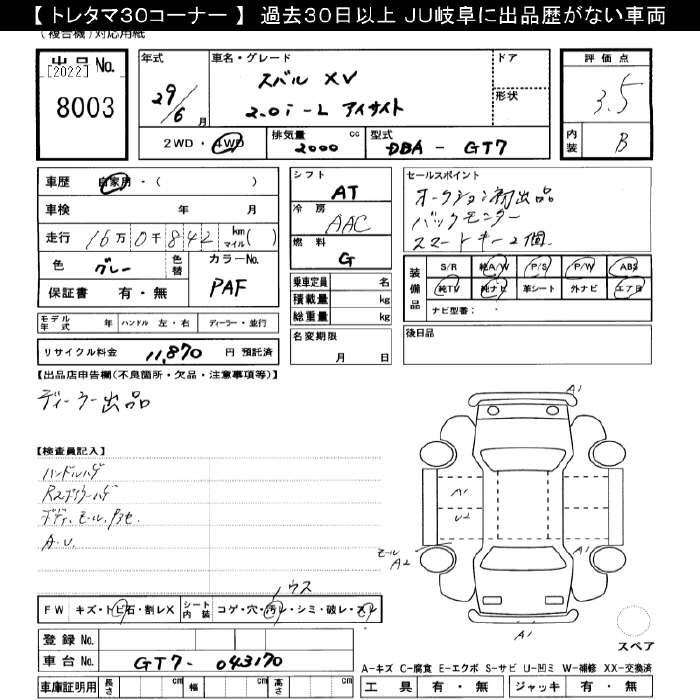 【 トレタマ30コーナー 】 過去30日以上 JU岐阜に出品歴がない車両
(複合機) 対応用紙
出品No.
[2022]
8003
年式
29/6 月
車名・グレード
スバル XV
2.0i-L アイサイト
ドア
形状
評価点
3.5
内装
B
2WD・4WD
排気量
2000 cc
型式
DBA - GT7
車歴 自家用・( )
車検 年 月
走行 16万0千842 km マイル ( )
色 グレー 色替
カラーNo.
PAF
保証書 有・無
モデル年式 年 ハンドル 左・右 ディーラー・並行
リサイクル料金 11,870 円 預託済
シフト
AT
冷房
AAC
燃料
G
乗車定員 名
積載量 kg
総重量 kg
名変期限
月 日
セールスポイント
オークション初出品
バックモニター
スマートキー2個
装備品
S/R 純A/W P/S P/W ABS
純TV 純ナビ 革シート 外ナビ エアB
ナビ型番:
後日品
【出品店申告欄(不良箇所・欠品・注意事項等)】
ディーラー出品
【検査員記入】
ハンドルハゲ
A.U.
A1
A1
U2
モール
A2
A1
A1
スペア
FW キズ・トビ石・割レX
シート内装 コゲ・穴・汚レ・シミ・破レ・スレ
登録No.
車台No. GT7-043170
車庫証明用 長さ cm 幅 cm 高さ cm
A-キズ C-腐食 E-エクボ S-サビ U-凹ミ W-補修 XX-交換済
工具 有・無 ジャッキ 有・無